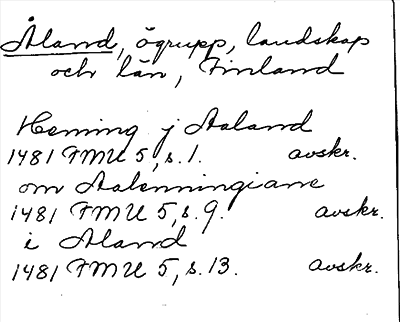 Åland, ögrupp, landskap
och län, Finland
Heming j Aaland
1481 FMU 5, s. 1. avskr.
om Aalenningiane
1481 FMU 5, s. 9. avskr.
i Aland
1481 FMU 5, s. 13. avskr.